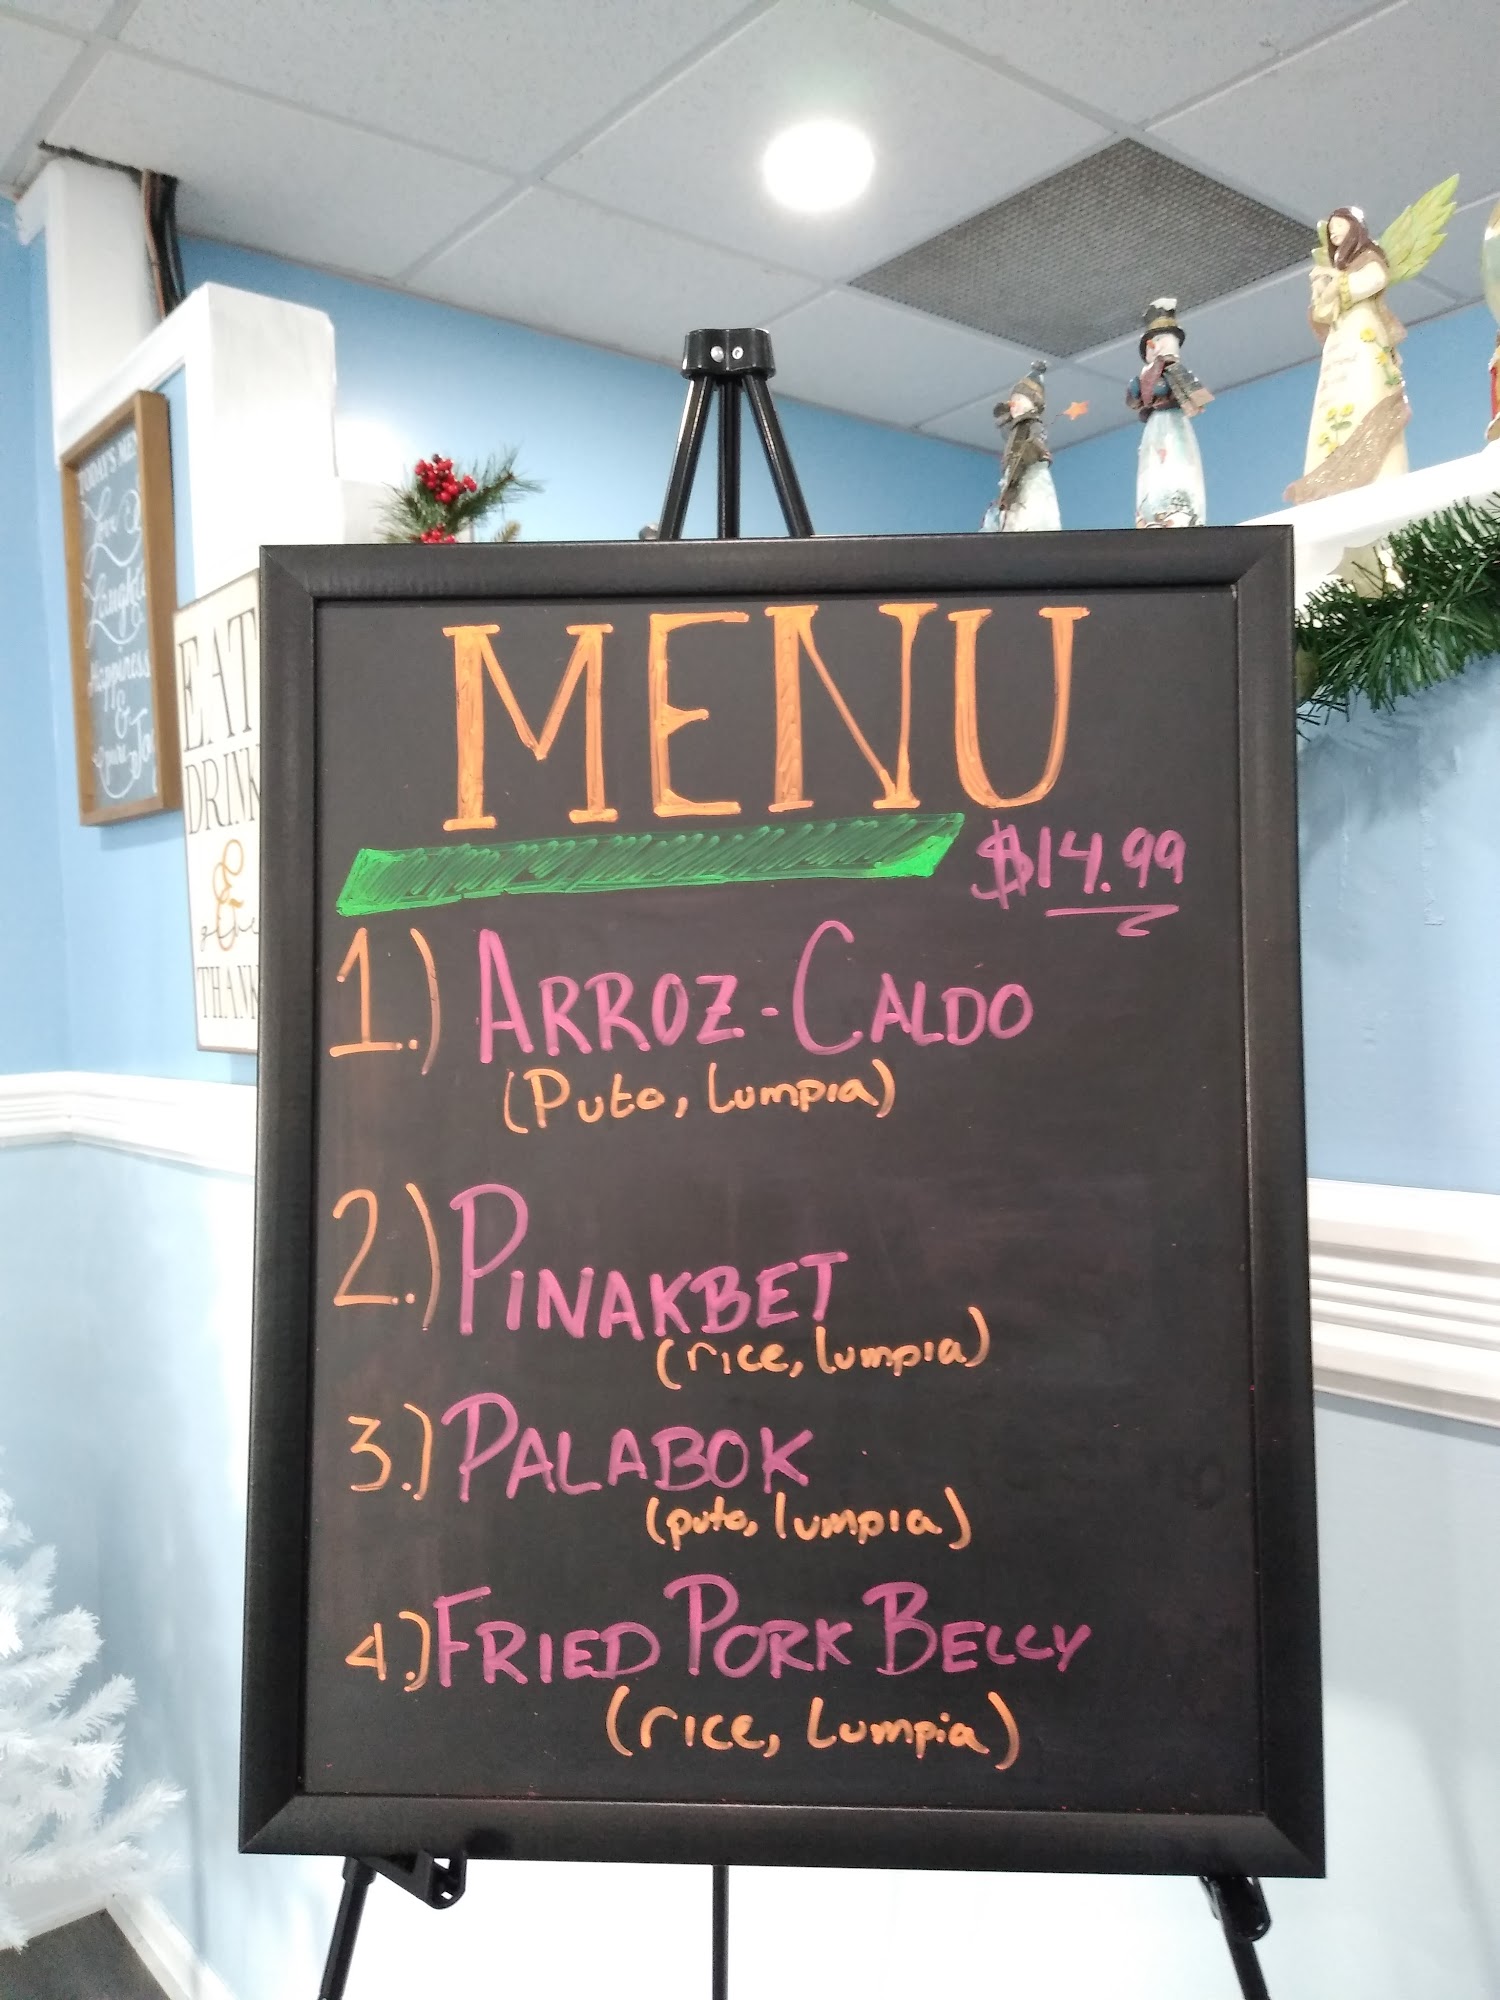 TODAY'S MENU
Love &
Laughter
Happiness
&
EAT
DRINK
&
THANKS
MENU
$14.99
1.) ARROZ-CALDO
(Puto, Lumpia)
2.) PINAKBET
(rice, lumpia)
3.) PALABOK
(puto, lumpia)
4.) FRIED PORK BELLY
(rice, Lumpia)